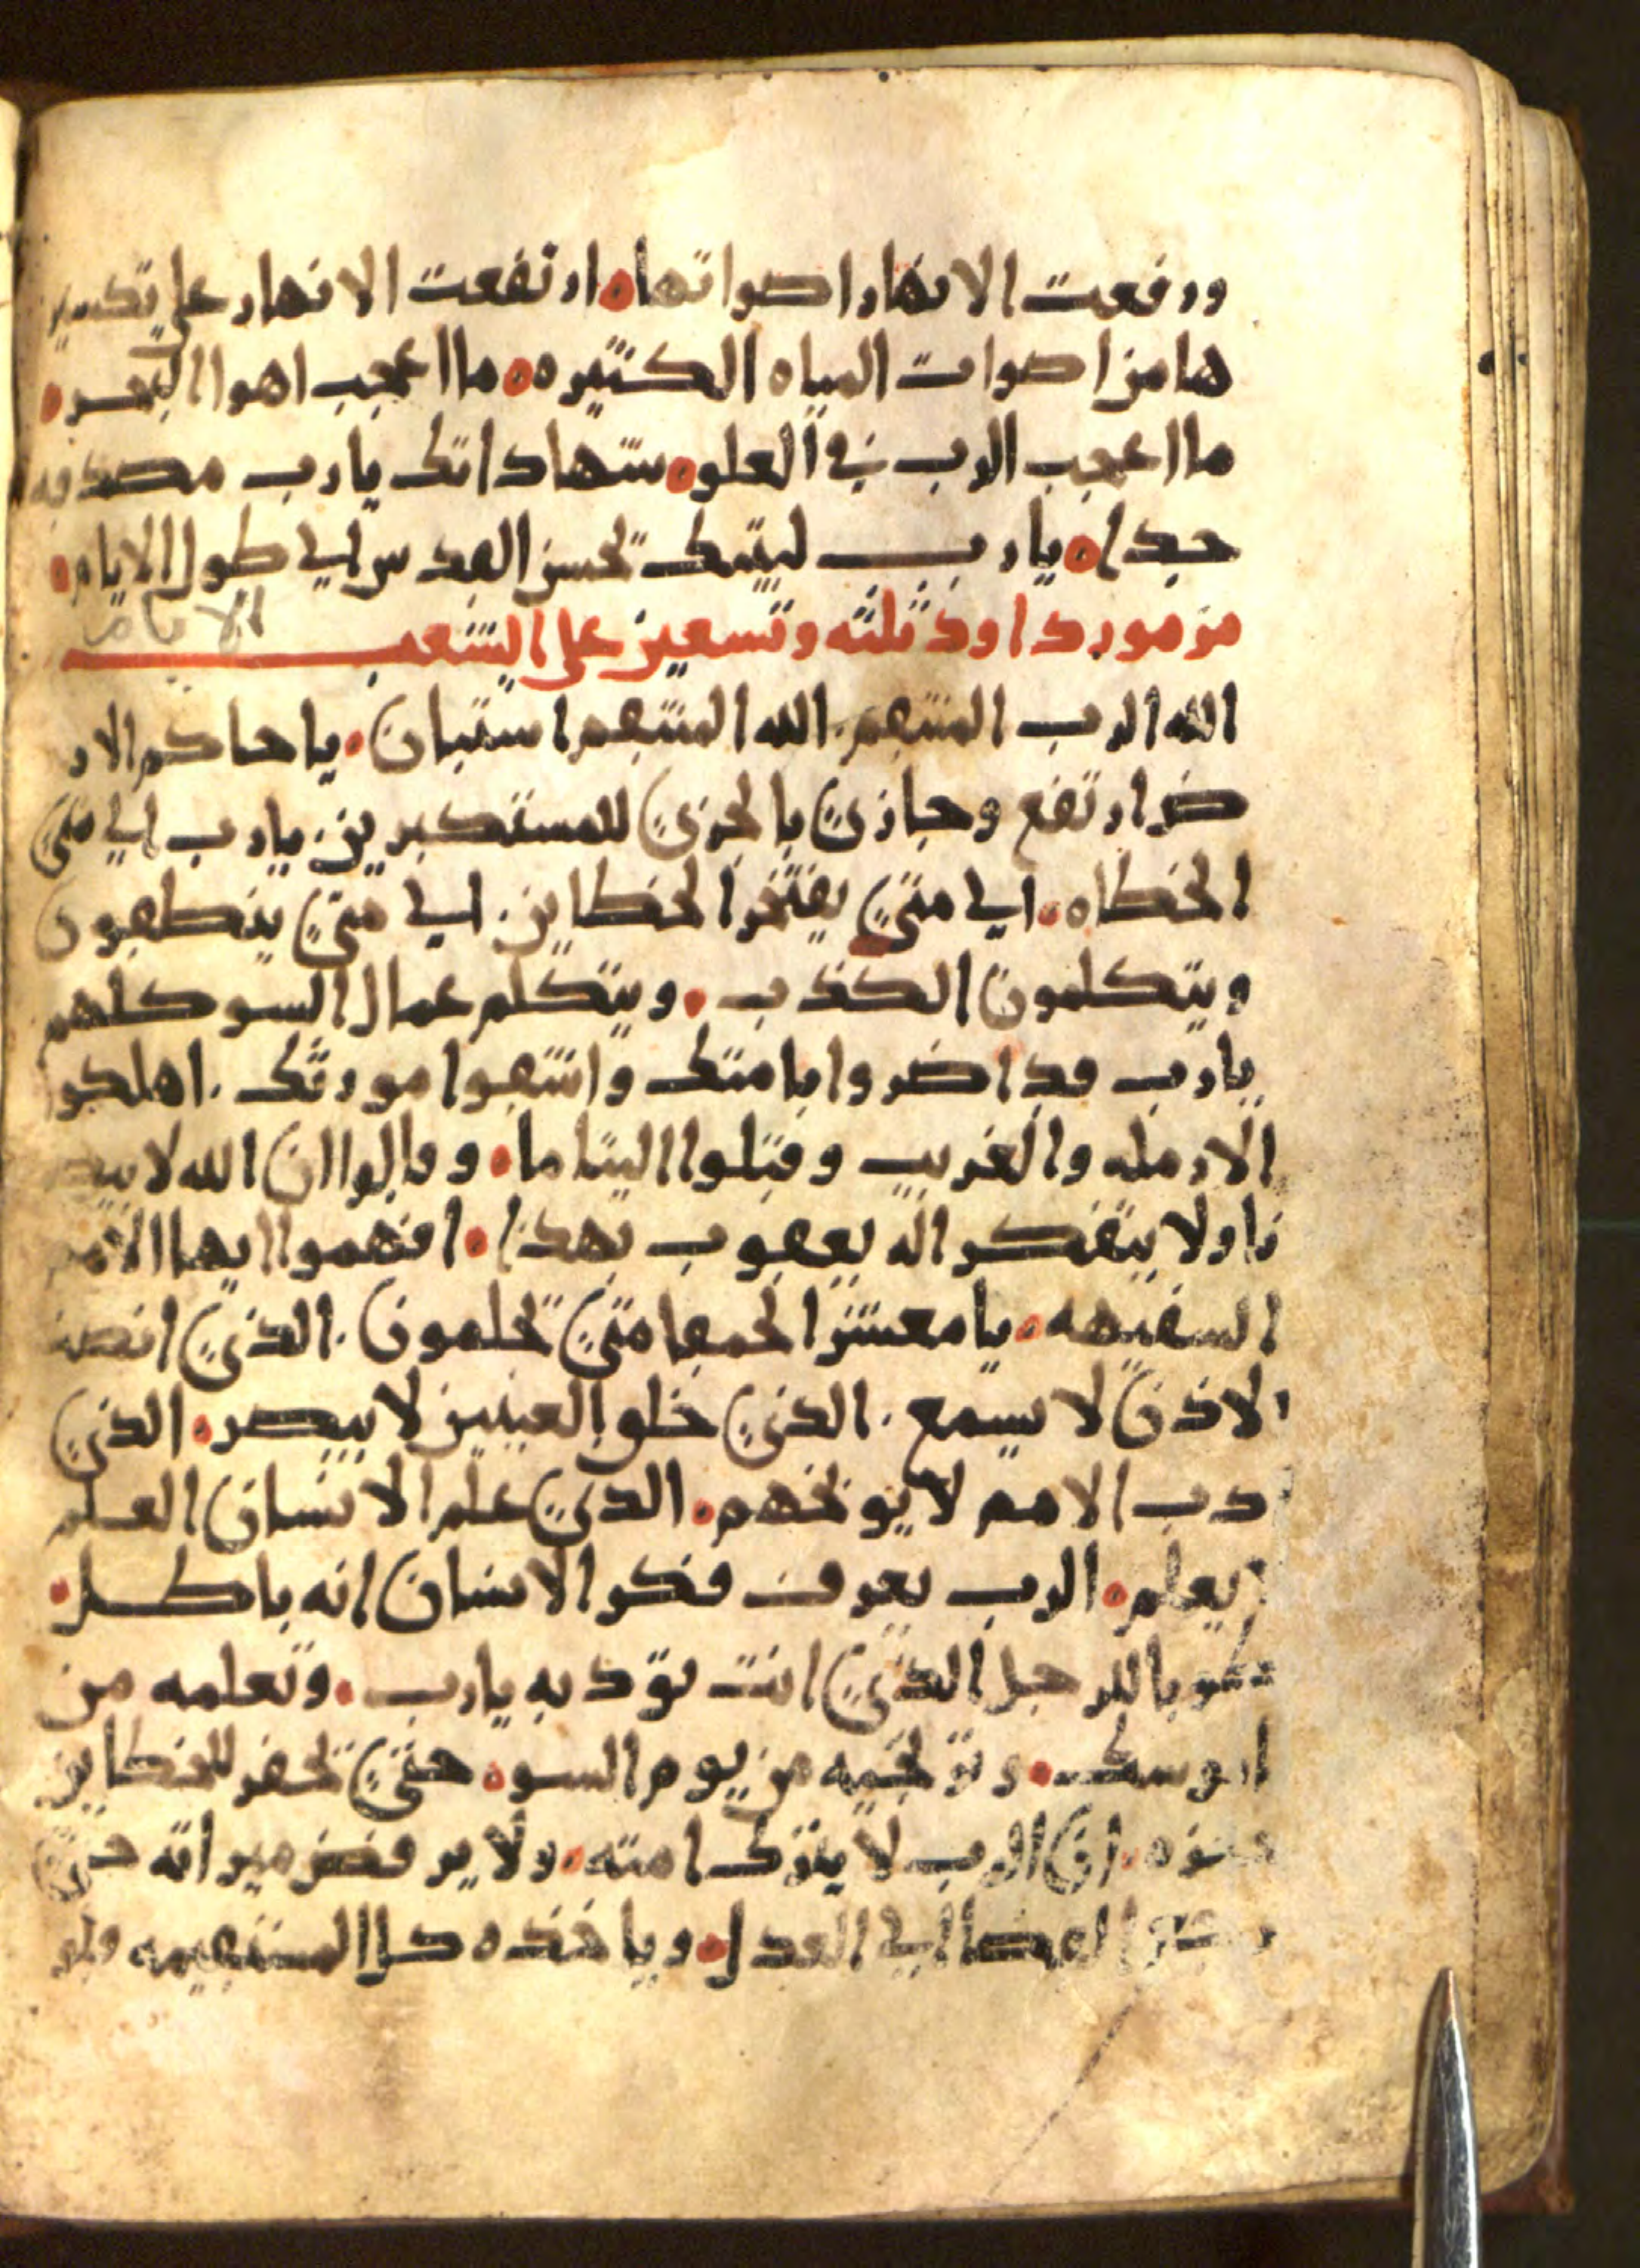 ورفعت الانهار اصواتها ارتفعت الانهار على تكسير
ها من اصوات المياه الكثيره ما اعجب اهوال البحر
ما اعجب الرب في العلو شهاداتك يارب مصدقه
جدا يارب لبيتك تحسن القدس الى طول الايام
الايام
مزمور داود ثلثه وتسعين على الشعب
الله الرب المنتقم الله المنتقم استبان يا حاكم الار
ض ارتفع وجازي بالخزي للمستكبرين يارب الى متى
الخطاه الى متى يفتخر الخطاين الى متى ينطقون
ويتكلمون الكذب ويتكلم عمال السو كلهم
يارب قد اضروا بامتك واشقوا مورثك اهلكوا
الارمله والغريب وقتلوا اليتاما وقالوا ان الله لا
نا ولا يتفكر اله يعقوب بهذا افهموا ايها الامم
السفيهه يا معشر الحمقا متى تحلمون الذي انصت
الاذن لا يسمع الذي خلق العينين لا يبصر الذي
دب الامم لا يوبخهم الذي علم الانسان العلم
يعلم الرب يعرف فكر الانسان انه باطل
طوبا للرجل الذي انت تودبه يارب وتعلمه من
ناموسك وتنجيه من يوم السو حتى تحفر للخطاين
حفره ان الرب لا يترك امته ولا يرفض ميراثه حتى
القضا الى العدل وياخذه كل المستقيمه